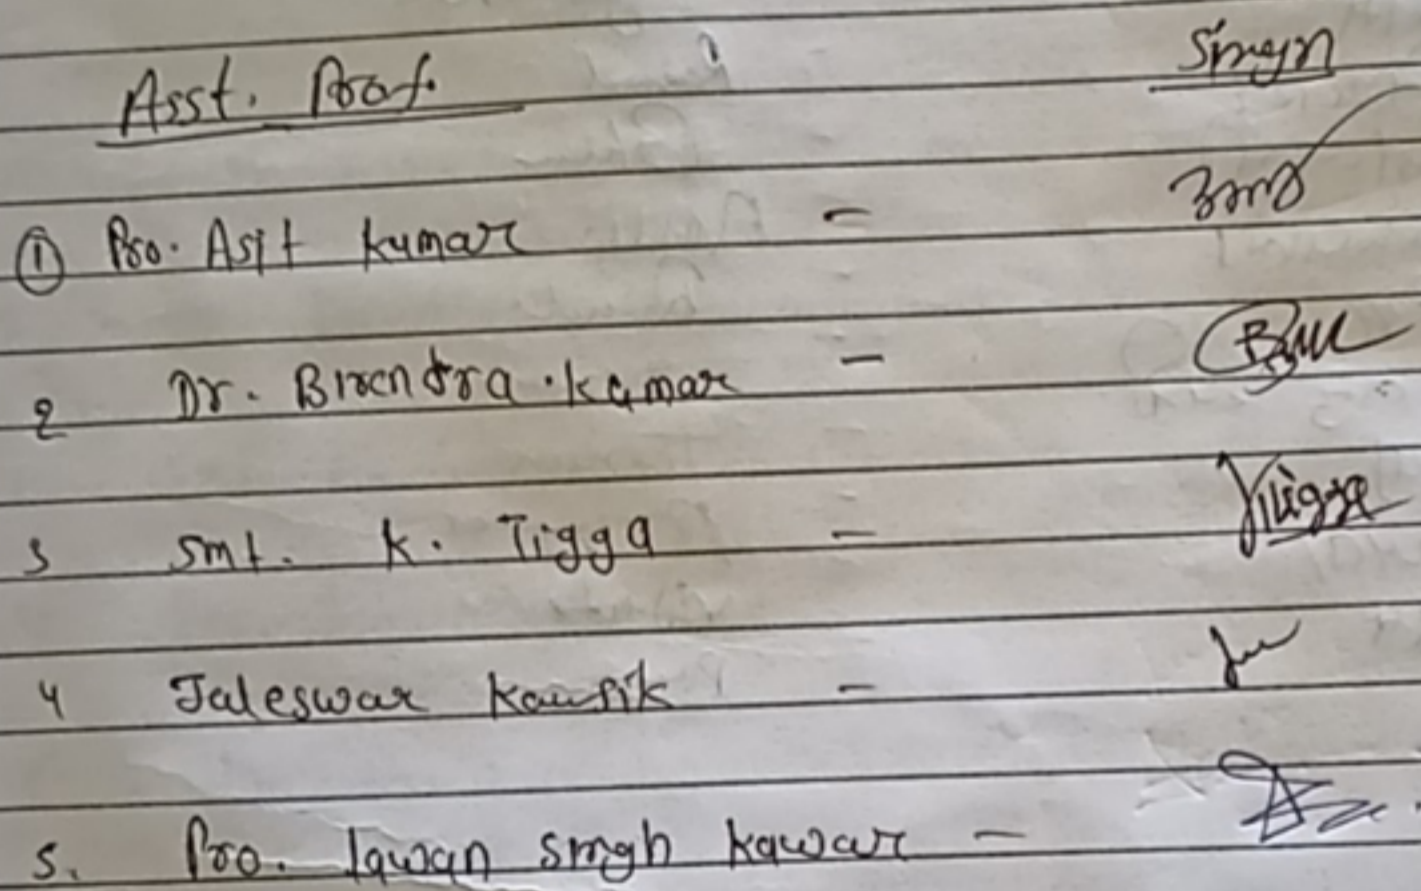 Asst. Prof. Smgn
① Pro. Asit kumar -
2 Dr. Birendra . kumar -
3 Smt. K. Tigga - Ktigga
4 Jaleswar Kausik -
5. Pro. lawan smgh kawar -